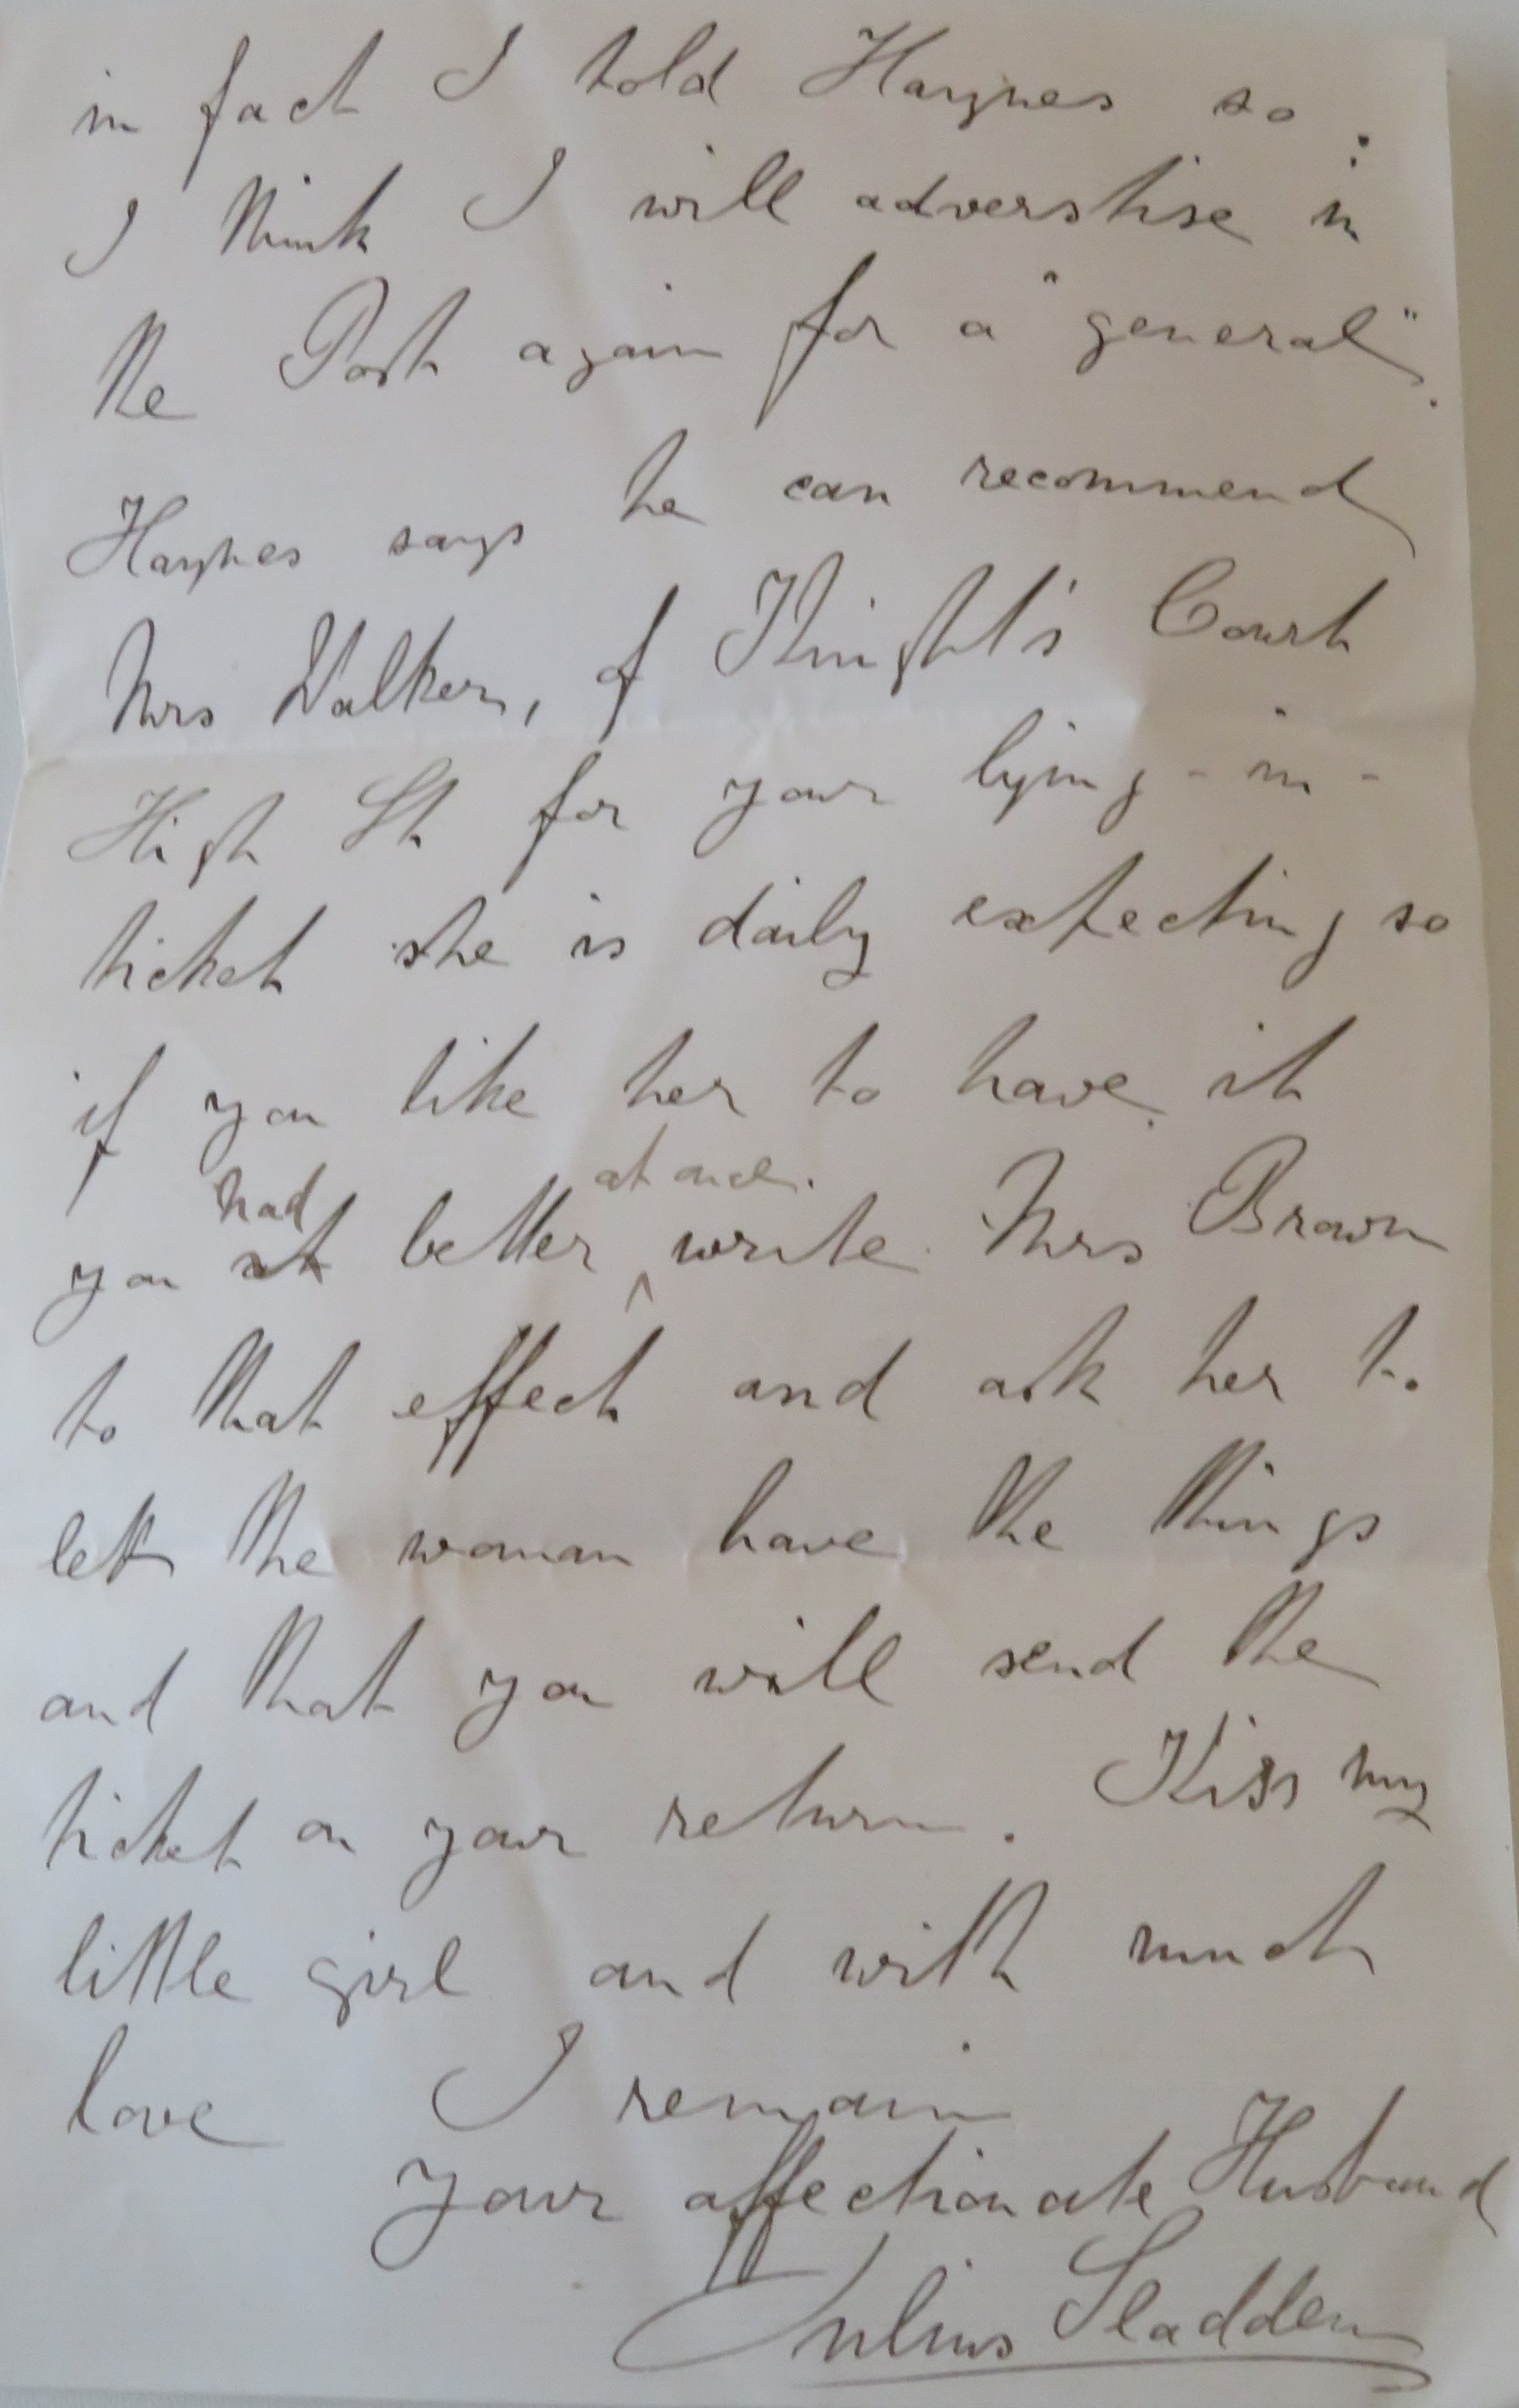 in fact I told Haynes so :
I think I will adverstise in
the Post again for a "general".
Haynes says he can recommend
Mrs Walker, of Knight's Court
High St for your lying-in-
ticket she is daily expecting so
if you like her to have it
had at once.
you better write Mrs Brown
to that effect and ask her to
let the woman have the things
and that you will send the
ticket on your return. Kiss my
little girl and with much
love I remain
Your affectionate Husband
Julius Sladden